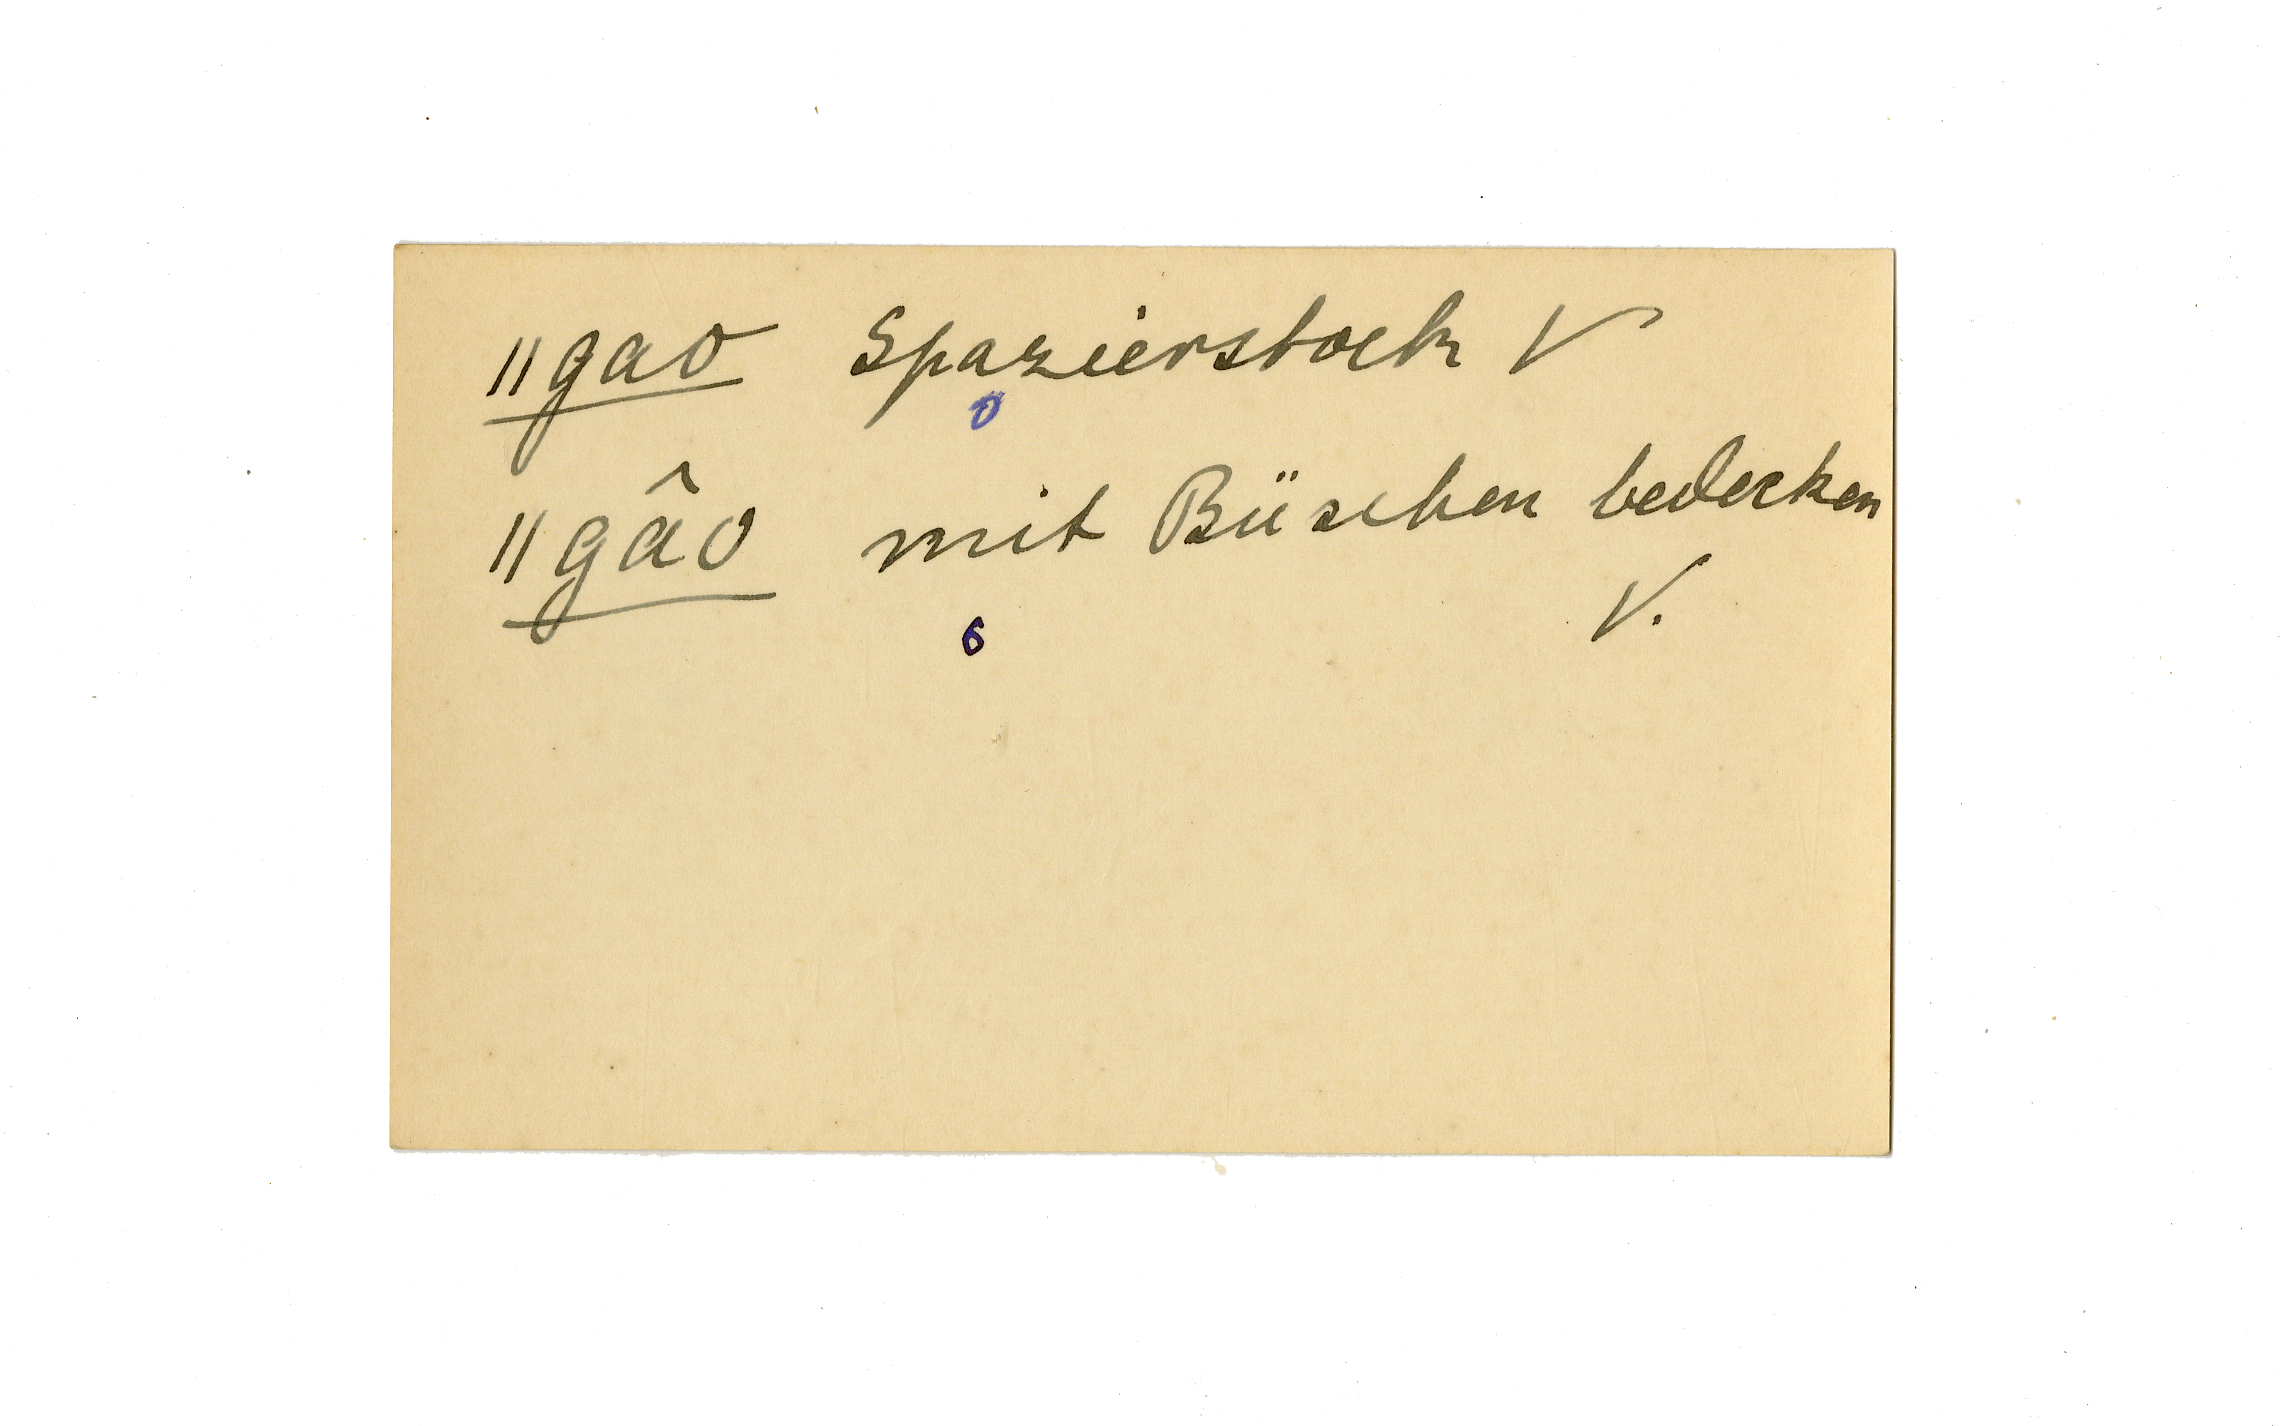 ǁgao Spazierstock V
0
ǁgâo mit Büschen bedecken
V.
6